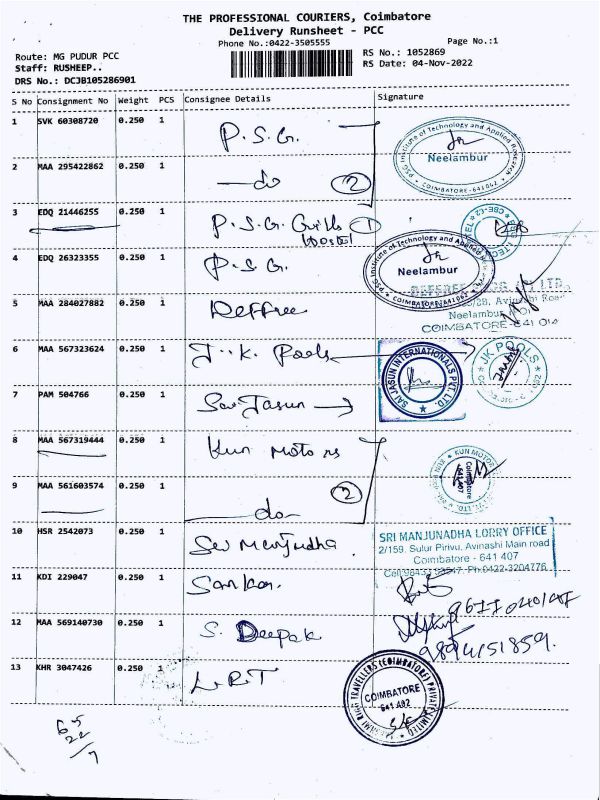 THE PROFESSIONAL COURIERS, Coimbatore
Delivery Runsheet - PCC
Phone No.:0422-3505555
Page No.:1
Route: MG PUDUR PCC
Staff: RUSHEEP..
DRS No.: DCJB105286901
RS No.: 1052869
RS Date: 04-Nov-2022
S No Consignment No Weight PCS Consignee Details Signature
1 SVK 60308720 0.250 1 P.S.G.
PSG Institute of Technology and Applied Research
Neelambur
COIMBATORE-641062
2 MAA 295422862 0.250 1 —do 2
3 EDQ 21446255 0.250 1 P.S.G. Girls 1
Hostel
4 EDQ 26323355 0.250 1 P.S.G.
PSG Institute of Technology and Applied
Neelambur
COIMBATORE-641062
5 MAA 284027882 0.250 1 Deffree
Avinashi Road
Neelambur
COIMBATORE-641
6 MAA 567323624 0.250 1 J.K. Pools
SAI JASUN INTERNATIONALS PVT. LTD.
JK POOLS
7 PAM 504766 0.250 1 Sai Jasun
8 MAA 567319444 0.250 1 Kun Motors
KUN MOTOR
Coimbatore
641 407
9 MAA 561603574 0.250 1 —do— 2
10 HSR 2542073 0.250 1 Sri Manjudha.
SRI MANJUNADHA LORRY OFFICE
2/159, Sulur Pirivu, Avinashi Main road
Coimbatore - 641 407
Ph.0422-3204776
11 KDI 229047 0.250 1 Sankar.
12 MAA 569140730 0.250 1 S. Deepak
9894151859.
13 KHR 3047426 0.250 1 L.R.T
TRAVELLERS (COIMBATORE) PRIVATE LIMITED
COIMBATORE
641 402
65
22
/7